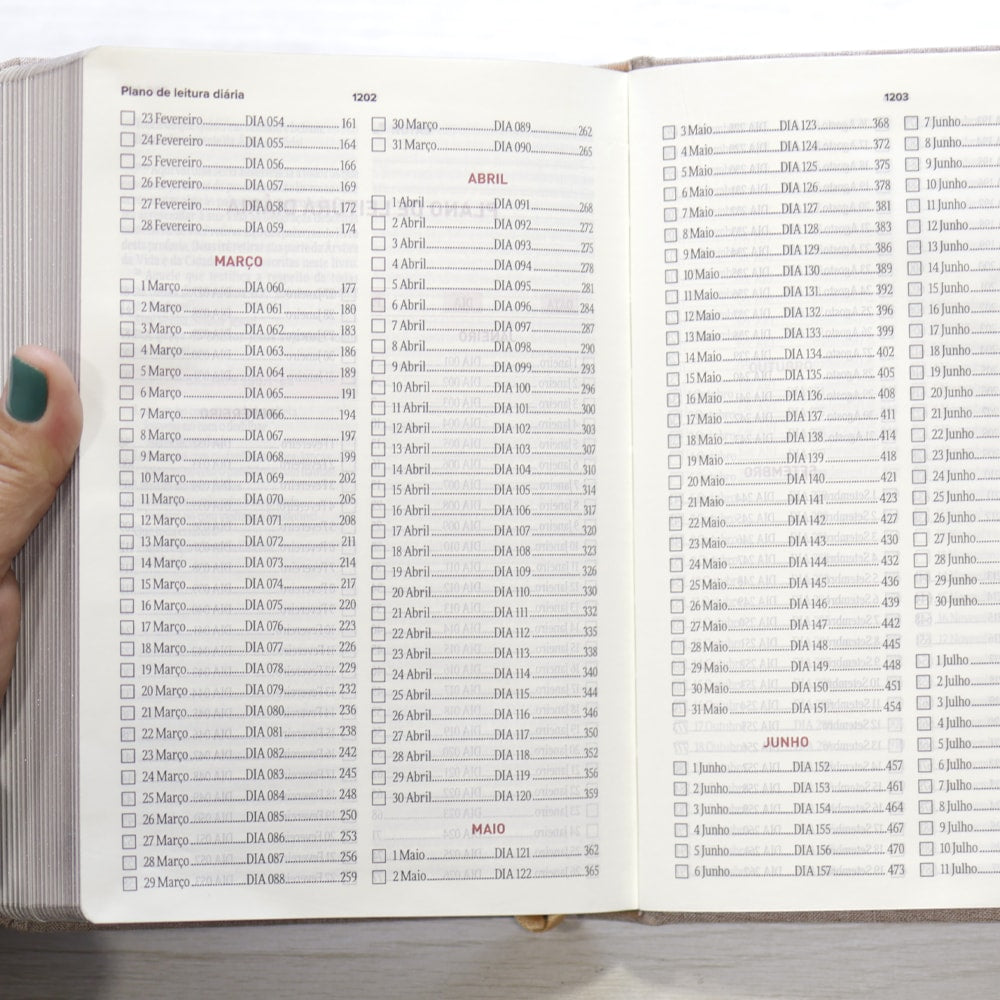 Plano de leitura diária
1202
23 Fevereiro DIA 054 161
24 Fevereiro DIA 055 164
25 Fevereiro DIA 056 166
26 Fevereiro DIA 057 169
27 Fevereiro DIA 058 172
28 Fevereiro DIA 059 174
MARÇO
1 Março DIA 060 177
2 Março DIA 061 180
3 Março DIA 062 183
4 Março DIA 063 186
5 Março DIA 064 189
6 Março DIA 065 191
7 Março DIA 066 194
8 Março DIA 067 197
9 Março DIA 068 199
10 Março DIA 069 202
11 Março DIA 070 205
12 Março DIA 071 208
13 Março DIA 072 211
14 Março DIA 073 214
15 Março DIA 074 217
16 Março DIA 075 220
17 Março DIA 076 223
18 Março DIA 077 226
19 Março DIA 078 229
20 Março DIA 079 232
21 Março DIA 080 236
22 Março DIA 081 238
23 Março DIA 082 242
24 Março DIA 083 245
25 Março DIA 084 248
26 Março DIA 085 250
27 Março DIA 086 253
28 Março DIA 087 256
29 Março DIA 088 259
30 Março DIA 089 262
31 Março DIA 090 265
ABRIL
1 Abril DIA 091 268
2 Abril DIA 092 272
3 Abril DIA 093 275
4 Abril DIA 094 278
5 Abril DIA 095 281
6 Abril DIA 096 284
7 Abril DIA 097 287
8 Abril DIA 098 290
9 Abril DIA 099 293
10 Abril DIA 100 296
11 Abril DIA 101 300
12 Abril DIA 102 303
13 Abril DIA 103 307
14 Abril DIA 104 310
15 Abril DIA 105 314
16 Abril DIA 106 317
17 Abril DIA 107 320
18 Abril DIA 108 323
19 Abril DIA 109 326
20 Abril DIA 110 330
21 Abril DIA 111 332
22 Abril DIA 112 335
23 Abril DIA 113 338
24 Abril DIA 114 340
25 Abril DIA 115 344
26 Abril DIA 116 346
27 Abril DIA 117 350
28 Abril DIA 118 352
29 Abril DIA 119 356
30 Abril DIA 120 359
MAIO
1 Maio DIA 121 362
2 Maio DIA 122 365
1203
3 Maio DIA 123 368
4 Maio DIA 124 372
5 Maio DIA 125 375
6 Maio DIA 126 378
7 Maio DIA 127 381
8 Maio DIA 128 383
9 Maio DIA 129 386
10 Maio DIA 130 389
11 Maio DIA 131 392
12 Maio DIA 132 396
13 Maio DIA 133 399
14 Maio DIA 134 402
15 Maio DIA 135 405
16 Maio DIA 136 408
17 Maio DIA 137 411
18 Maio DIA 138 414
19 Maio DIA 139 418
20 Maio DIA 140 421
21 Maio DIA 141 423
22 Maio DIA 142 427
23 Maio DIA 143 430
24 Maio DIA 144 432
25 Maio DIA 145 436
26 Maio DIA 146 439
27 Maio DIA 147 442
28 Maio DIA 148 445
29 Maio DIA 149 448
30 Maio DIA 150 451
31 Maio DIA 151 454
JUNHO
1 Junho DIA 152 457
2 Junho DIA 153 461
3 Junho DIA 154 464
4 Junho DIA 155 467
5 Junho DIA 156 470
6 Junho DIA 157 473
7 Junho
8 Junho
9 Junho
10 Junho
11 Junho
12 Junho
13 Junho
14 Junho
15 Junho
16 Junho
17 Junho
18 Junho
19 Junho
20 Junho
21 Junho
22 Junho
23 Junho
24 Junho
25 Junho
26 Junho
27 Junho
28 Junho
29 Junho
30 Junho
1 Julho
2 Julho
3 Julho
4 Julho
5 Julho
6 Julho
7 Julho
8 Julho
9 Julho
10 Julho
11 Julho